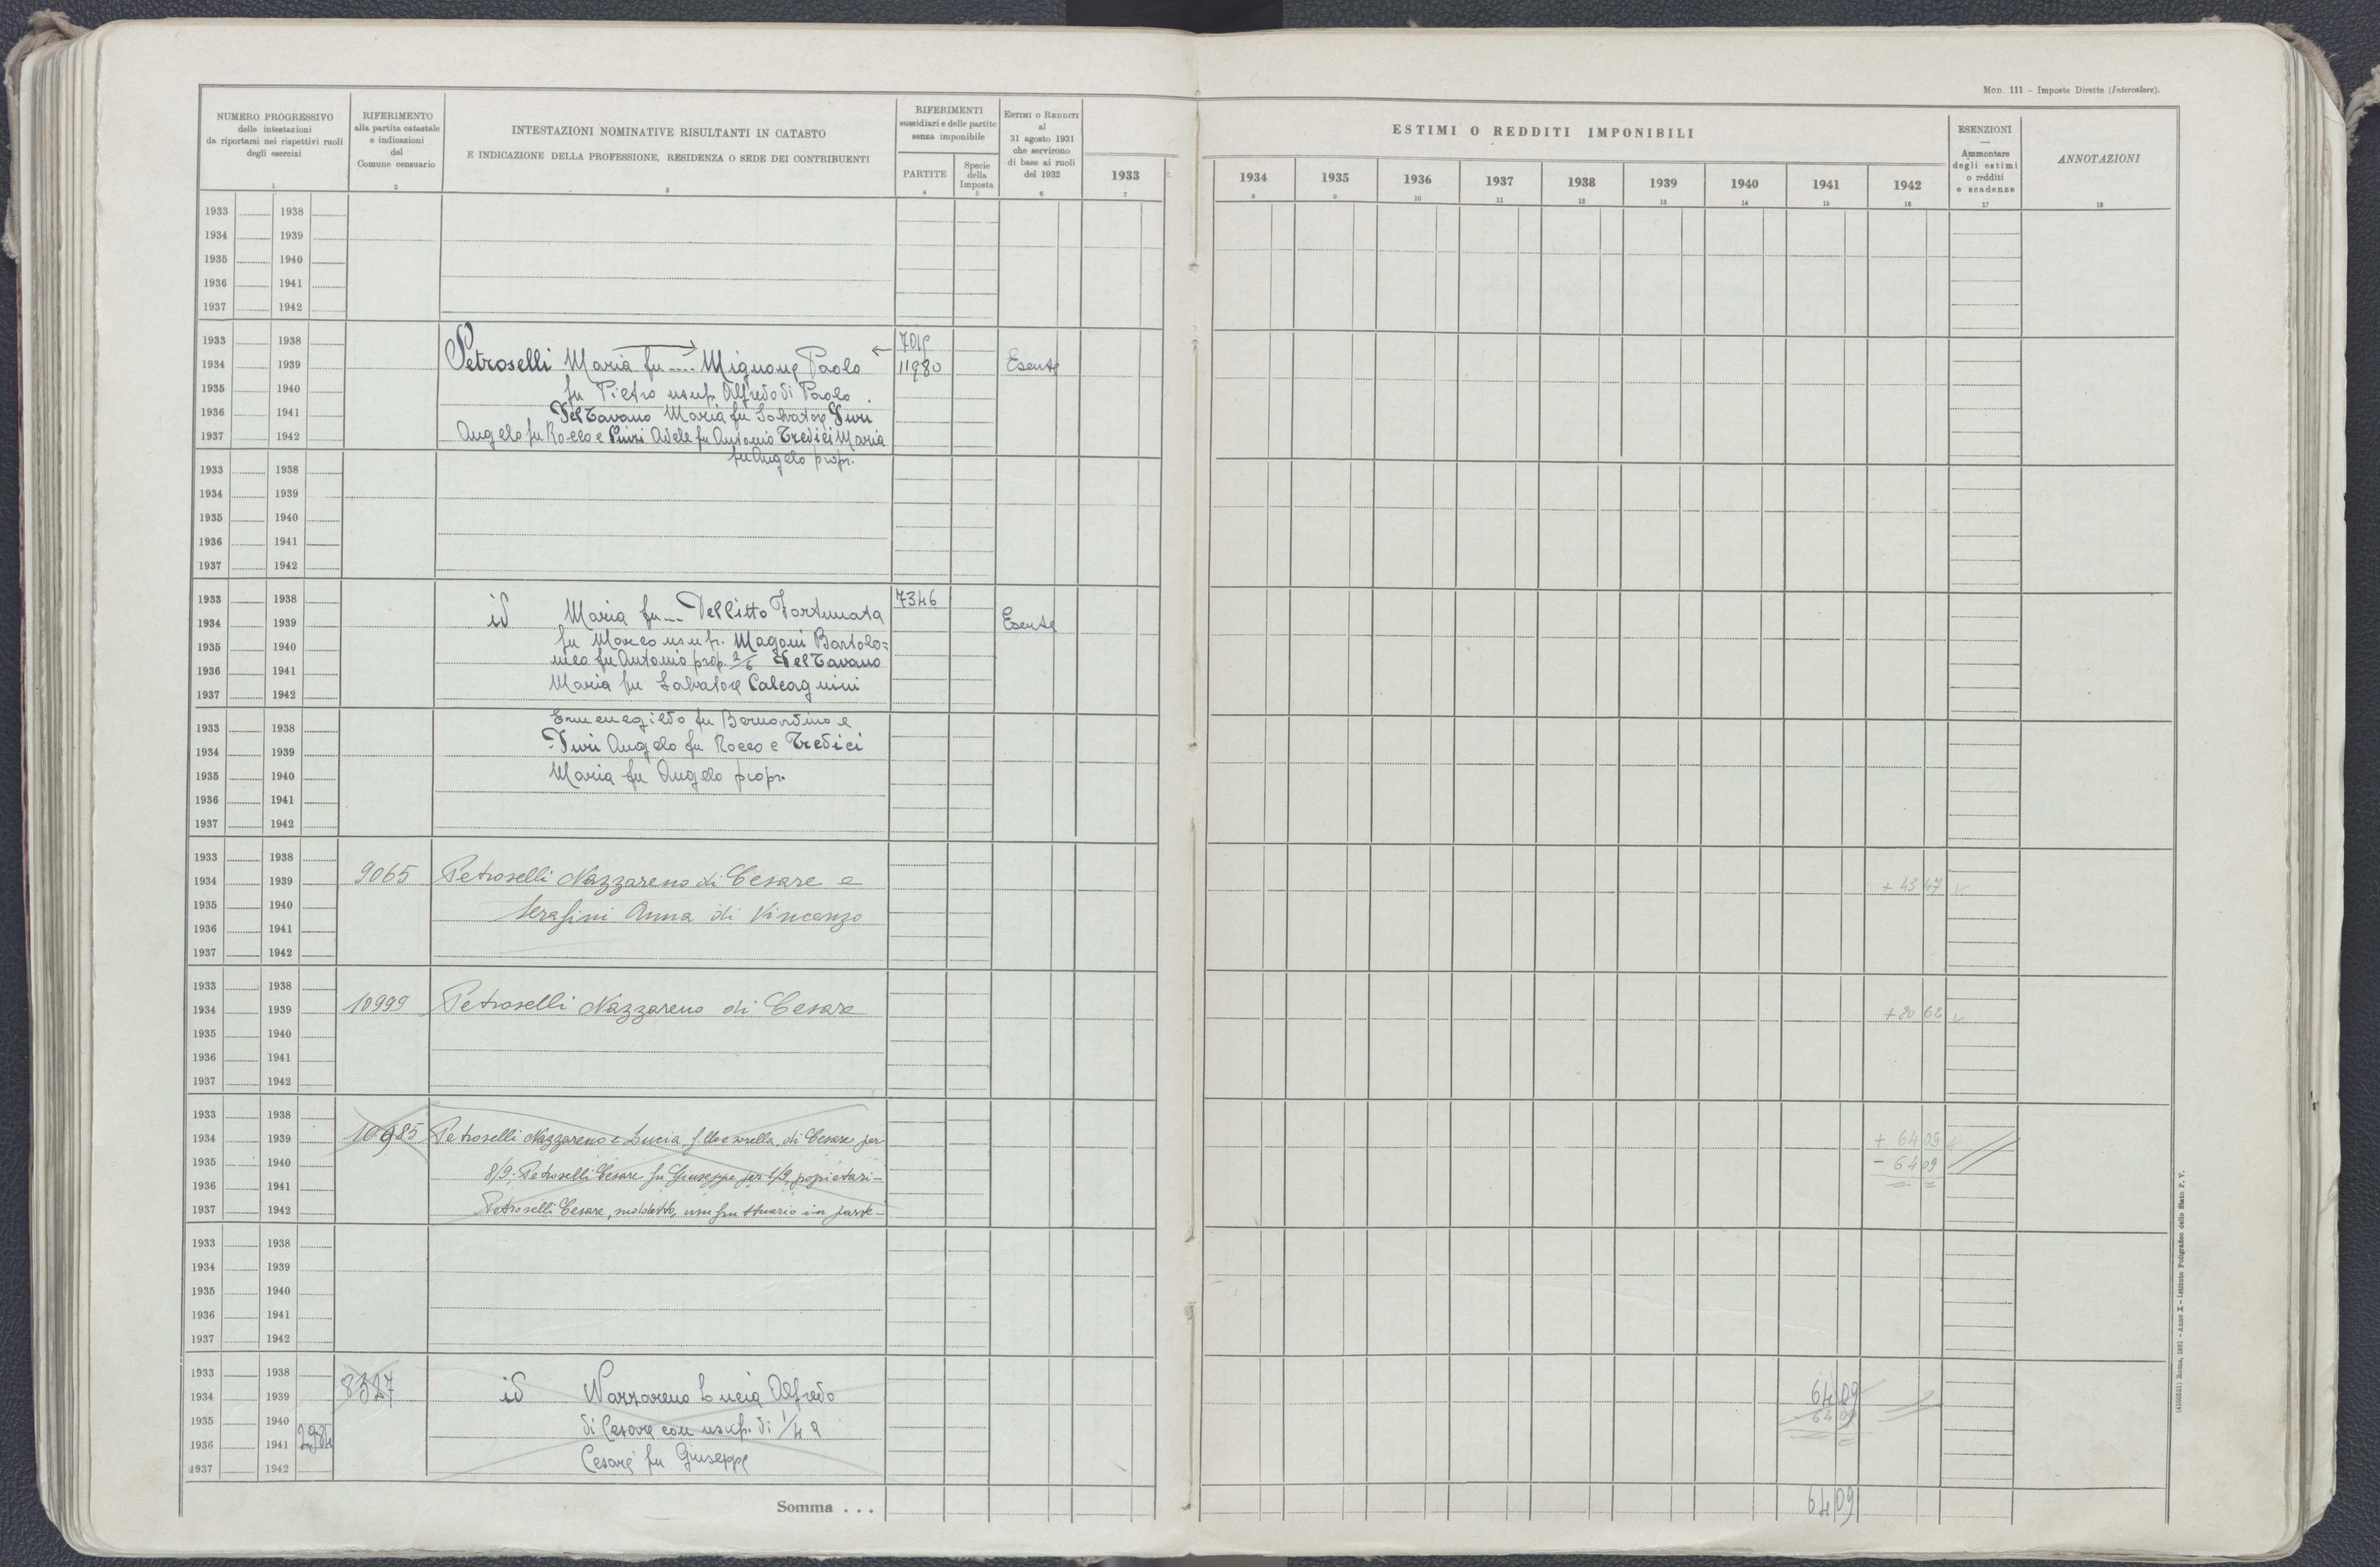 Mod. 111 - Imposte Dirette (Intercalare).
NUMERO PROGRESSIVO
delle intestazioni
da riportarsi nei rispettivi ruoli
degli esercizi
1
RIFERIMENTO
alla partita catastale
e indicazioni
del
Comune censuario
2
INTESTAZIONI NOMINATIVE RISULTANTI IN CATASTO
E INDICAZIONE DELLA PROFESSIONE, RESIDENZA O SEDE DEI CONTRIBUENTI
3
RIFERIMENTI
sussidiari e delle partite
senza imponibile
PARTITE
4
Specie
della
Imposta
5
ESTIMI O REDDITI
al
31 agosto 1931
che servirono
di base ai ruoli
del 1932
6
1933
7
ESTIMI O REDDITI IMPONIBILI
1934 1935 1936 1937 1938 1939 1940 1941 1942
8 9 10 11 12 13 14 15 16
ESENZIONI
—
Ammontare
degli estimi
o redditi
e scadenze
17
ANNOTAZIONI
18
1933 1938
1934 1939
1935 1940
1936 1941
1937 1942
1933 1938 7019
1934 1939 Petroselli Maria fu .... Mignone Paolo 11980 Esente
1935 1940 fu Pietro usuf. Alfredo di Paolo.
1936 1941 Del Tavano Maria fu Salvatore Iuri
1937 1942 Angelo fu Rocco e Adele fu Antonio Tredici Maria
fu Angelo propr.
1933 1938
1934 1939
1935 1940
1936 1941
1937 1942
1933 1938 7346
1934 1939 id Maria fu ... Dellitto Fortunata Esente
1935 1940 fu Marco usuf. Magoni Bartolo=
1936 1941 meo fu Antonio prop. 2/6 Del Tavano
1937 1942 Maria fu Salvatore Calcagnini
Ermenegildo fu Bernardino e
1933 1938
1934 1939 Iuri Angelo fu Rocco e Tredici
1935 1940 Maria fu Angelo propr.
1936 1941
1937 1942
1933 1938
1934 1939 9065 Petroselli Nazzareno di Cesare e + 43 47
1935 1940 Serafini Anna di Vincenzo
1936 1941
1937 1942
1933 1938
1934 1939 10999 Petroselli Nazzareno di Cesare + 20 62
1935 1940
1936 1941
1937 1942
1933 1938
1934 1939 10985 Petroselli Nazzareno e Lucia, f.llo e sorella, di Cesare per + 64 09
1935 1940 8/9; Petroselli Cesare fu Giuseppe per 1/9, propietari - - 64 09
1936 1941
1937 1942 Petroselli Cesare, suddetto, usufruttuario in parte -
1933 1938
1934 1939
1935 1940
1936 1941
1937 1942
1933 1938
1934 1939 8327 id Nazzareno Lucia Alfredo 64 09
1935 1940 di Cesare con usuf. di 1/4 a - 64 09
1936 1941
1937 1942 Cesare fu Giuseppe
Somma . . . 64 09
(4106841) Roma, 1931 - Anno X - Istituto Poligrafico dello Stato P. V.